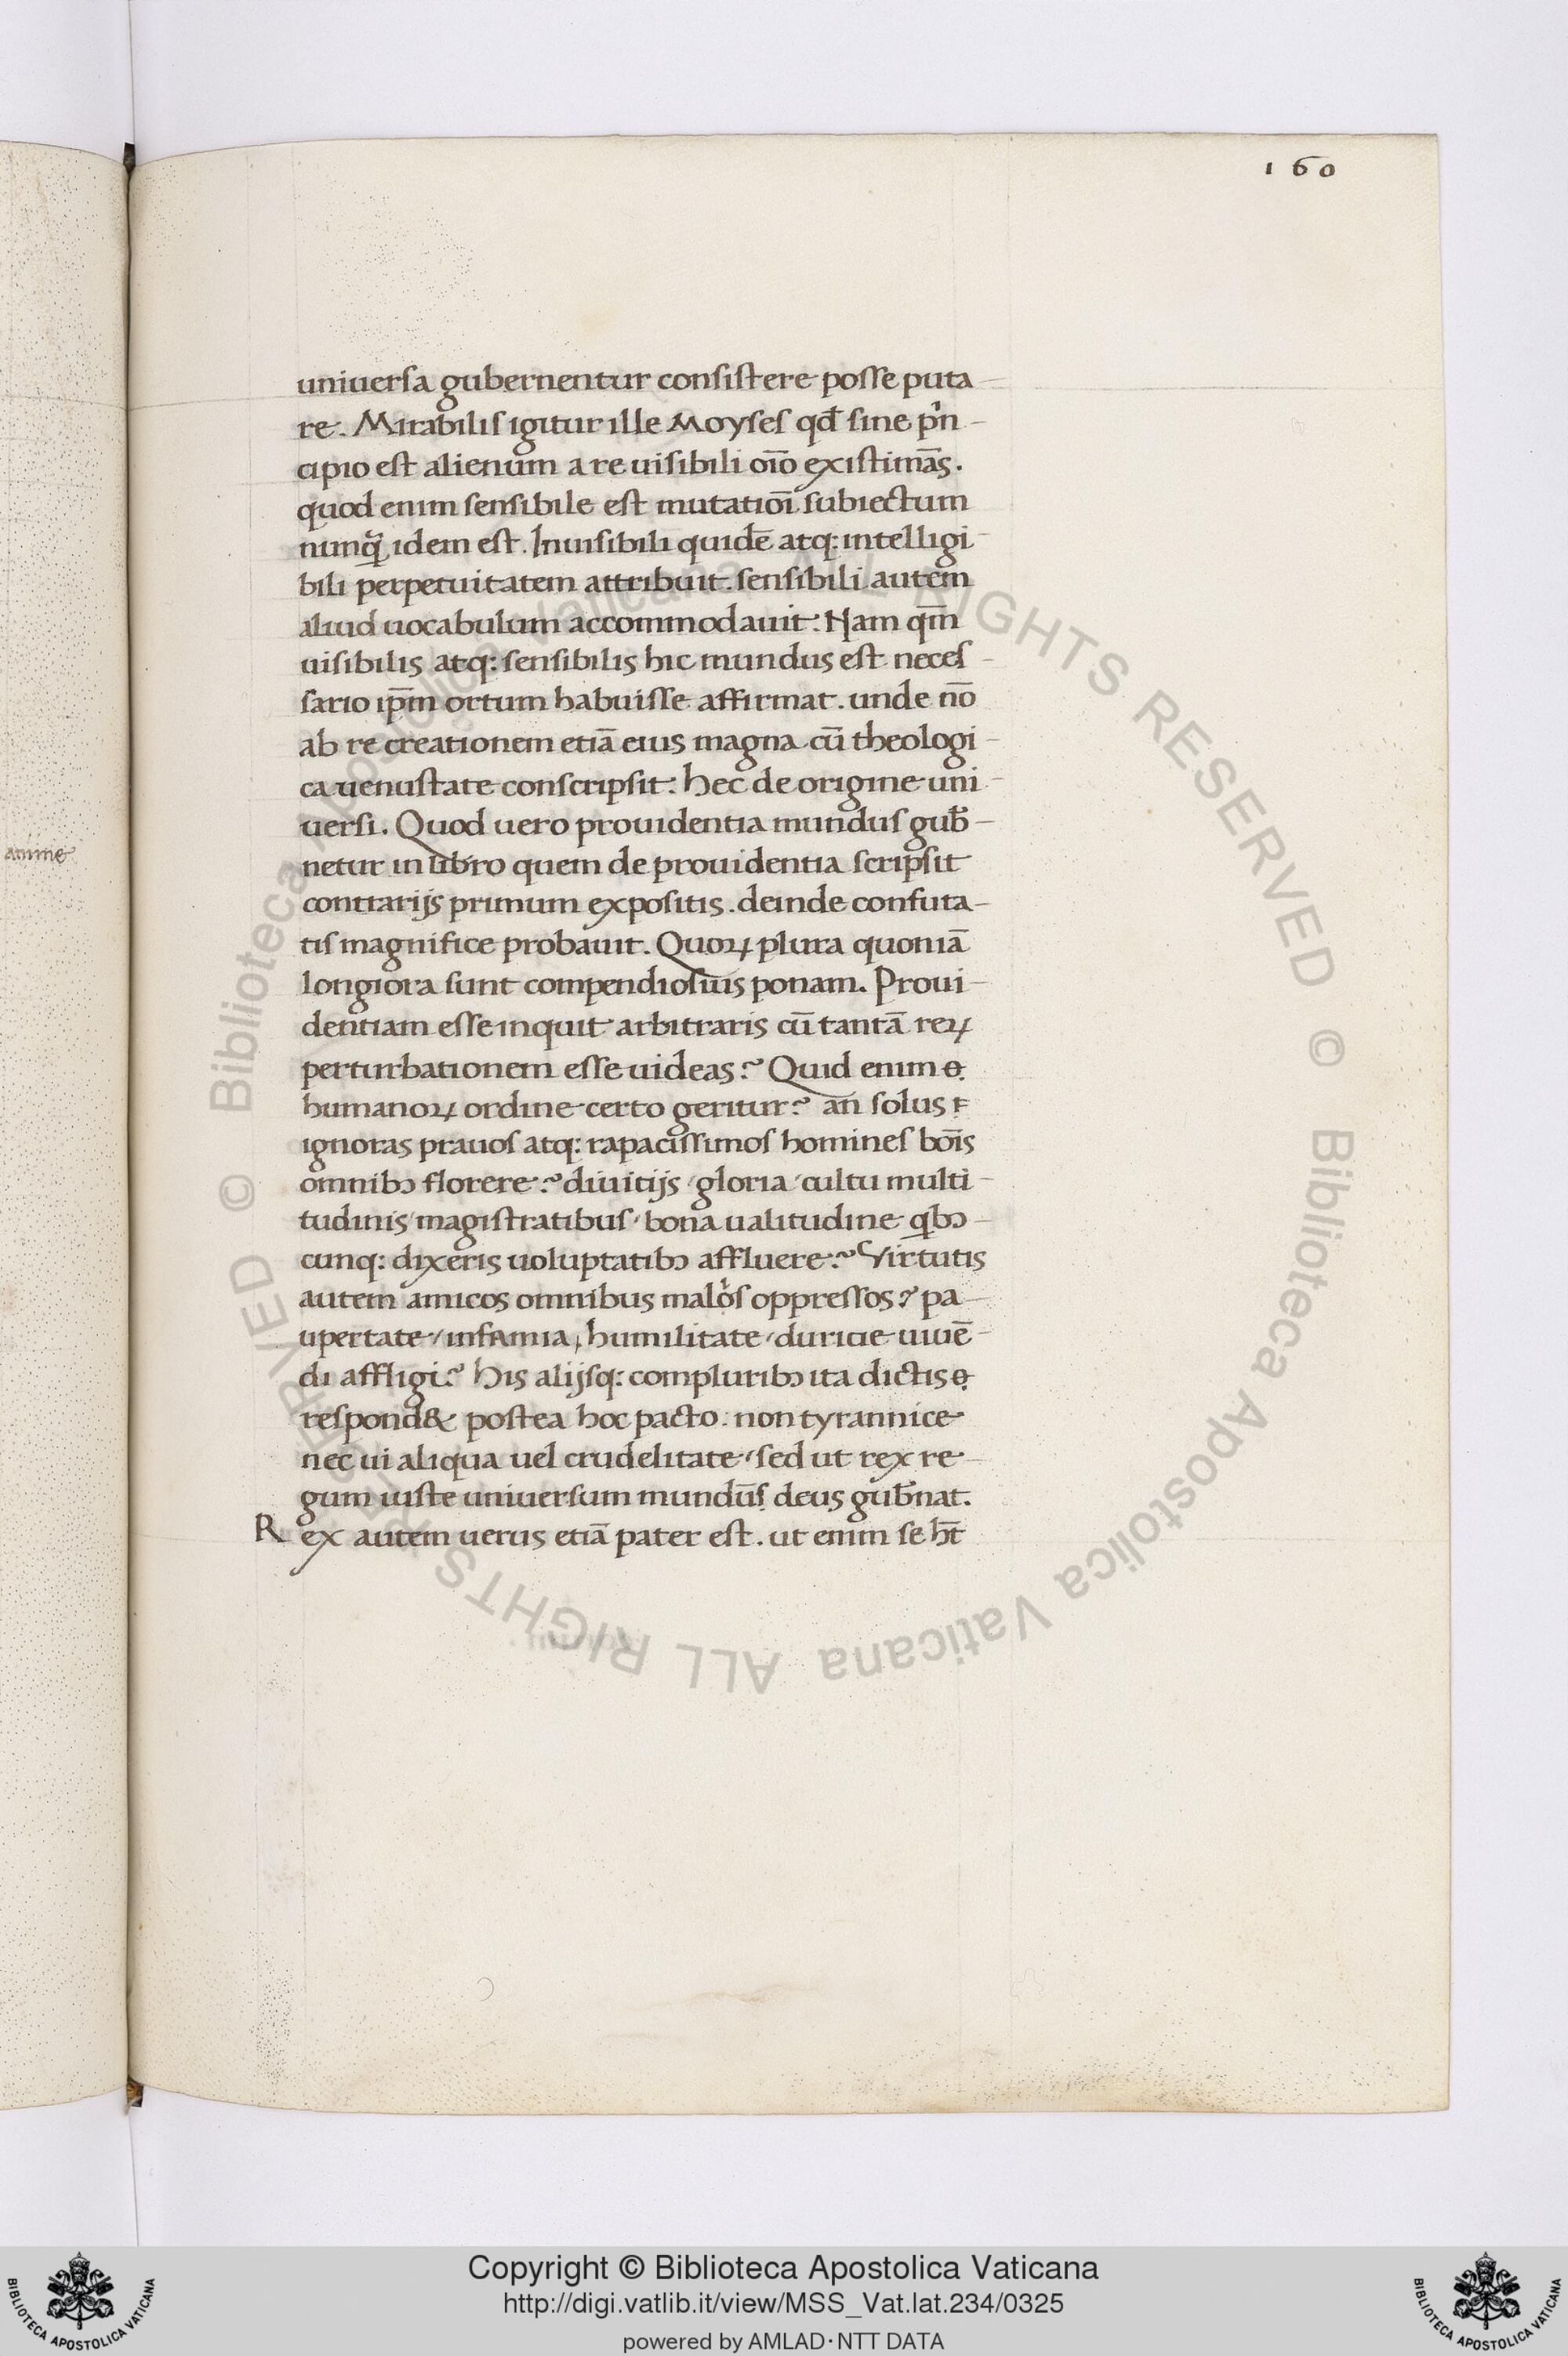 160
uniuersa gubernentur consistere posse puta
re. Mirabilis igitur ille Moyses qđ sine p̄rin
cipio est alienum a re uisibili oīo existimās.
quod enim sensibile est mutatiōi subiectum
nunq̄ idem est. Inuisibili quidē atq: intelligi
bili perpetuitatem attribuit. sensibili autem
aliud uocabulum accommodauit: Nam qm̄
uisibilis atq: sensibilis hic mundus est neces
sario ip̄m ortum habuisse affirmat. unde nō
ab re creationem etiā eius magna cū theologi
ca uenustate conscripsit: hec de origine uni
uersi. Quod uero prouidentia mundus gub̄
netur in libro quem de prouidentia scripsit
contrarijs primum expositis. deinde confuta
tis magnifice probauit. Quoꝝ plura quoniā
longiora sunt compendiosius ponam. Proui
dentiam esse inquit arbitraris cū tantā reꝝ
perturbationem esse uideas? Quid enim
humanoꝝ ordine certo geritur? an solus
ignoras prauos atq: rapacissimos homines boīs
omnibꝰ florere? diuitijs / gloria / cultu multi
tudinis / magistratibus / bona ualitudine qͥbꝰ
cunq: dixeris uoluptatibꝰ affluere? Virtutis
autem amicos omnibus malos oppressos? pa
upertate / infamia, humilitate / duricie uiuē
di affligi? his alijsq: compluribꝰ ita dictis
respond& postea hoc pacto. non tyrannice
nec ui aliqua uel crudelitate / sed ut rex re
gum iuste uniuersum mundūs deus gub̄nat.
Rex autem uerus etiā pater est. ut enim se h̄t
Copyright © Biblioteca Apostolica Vaticana
http://digi.vatlib.it/view/MSS_Vat.lat.234/0325
powered by AMLAD·NTT DATA
BIBLIOTECA APOSTOLICA VATICANA
BIBLIOTECA APOSTOLICA VATICANA
© Biblioteca Apostolica Vaticana ALL RIGHTS RESERVED
© Biblioteca Apostolica Vaticana ALL RIGHTS RESERVED